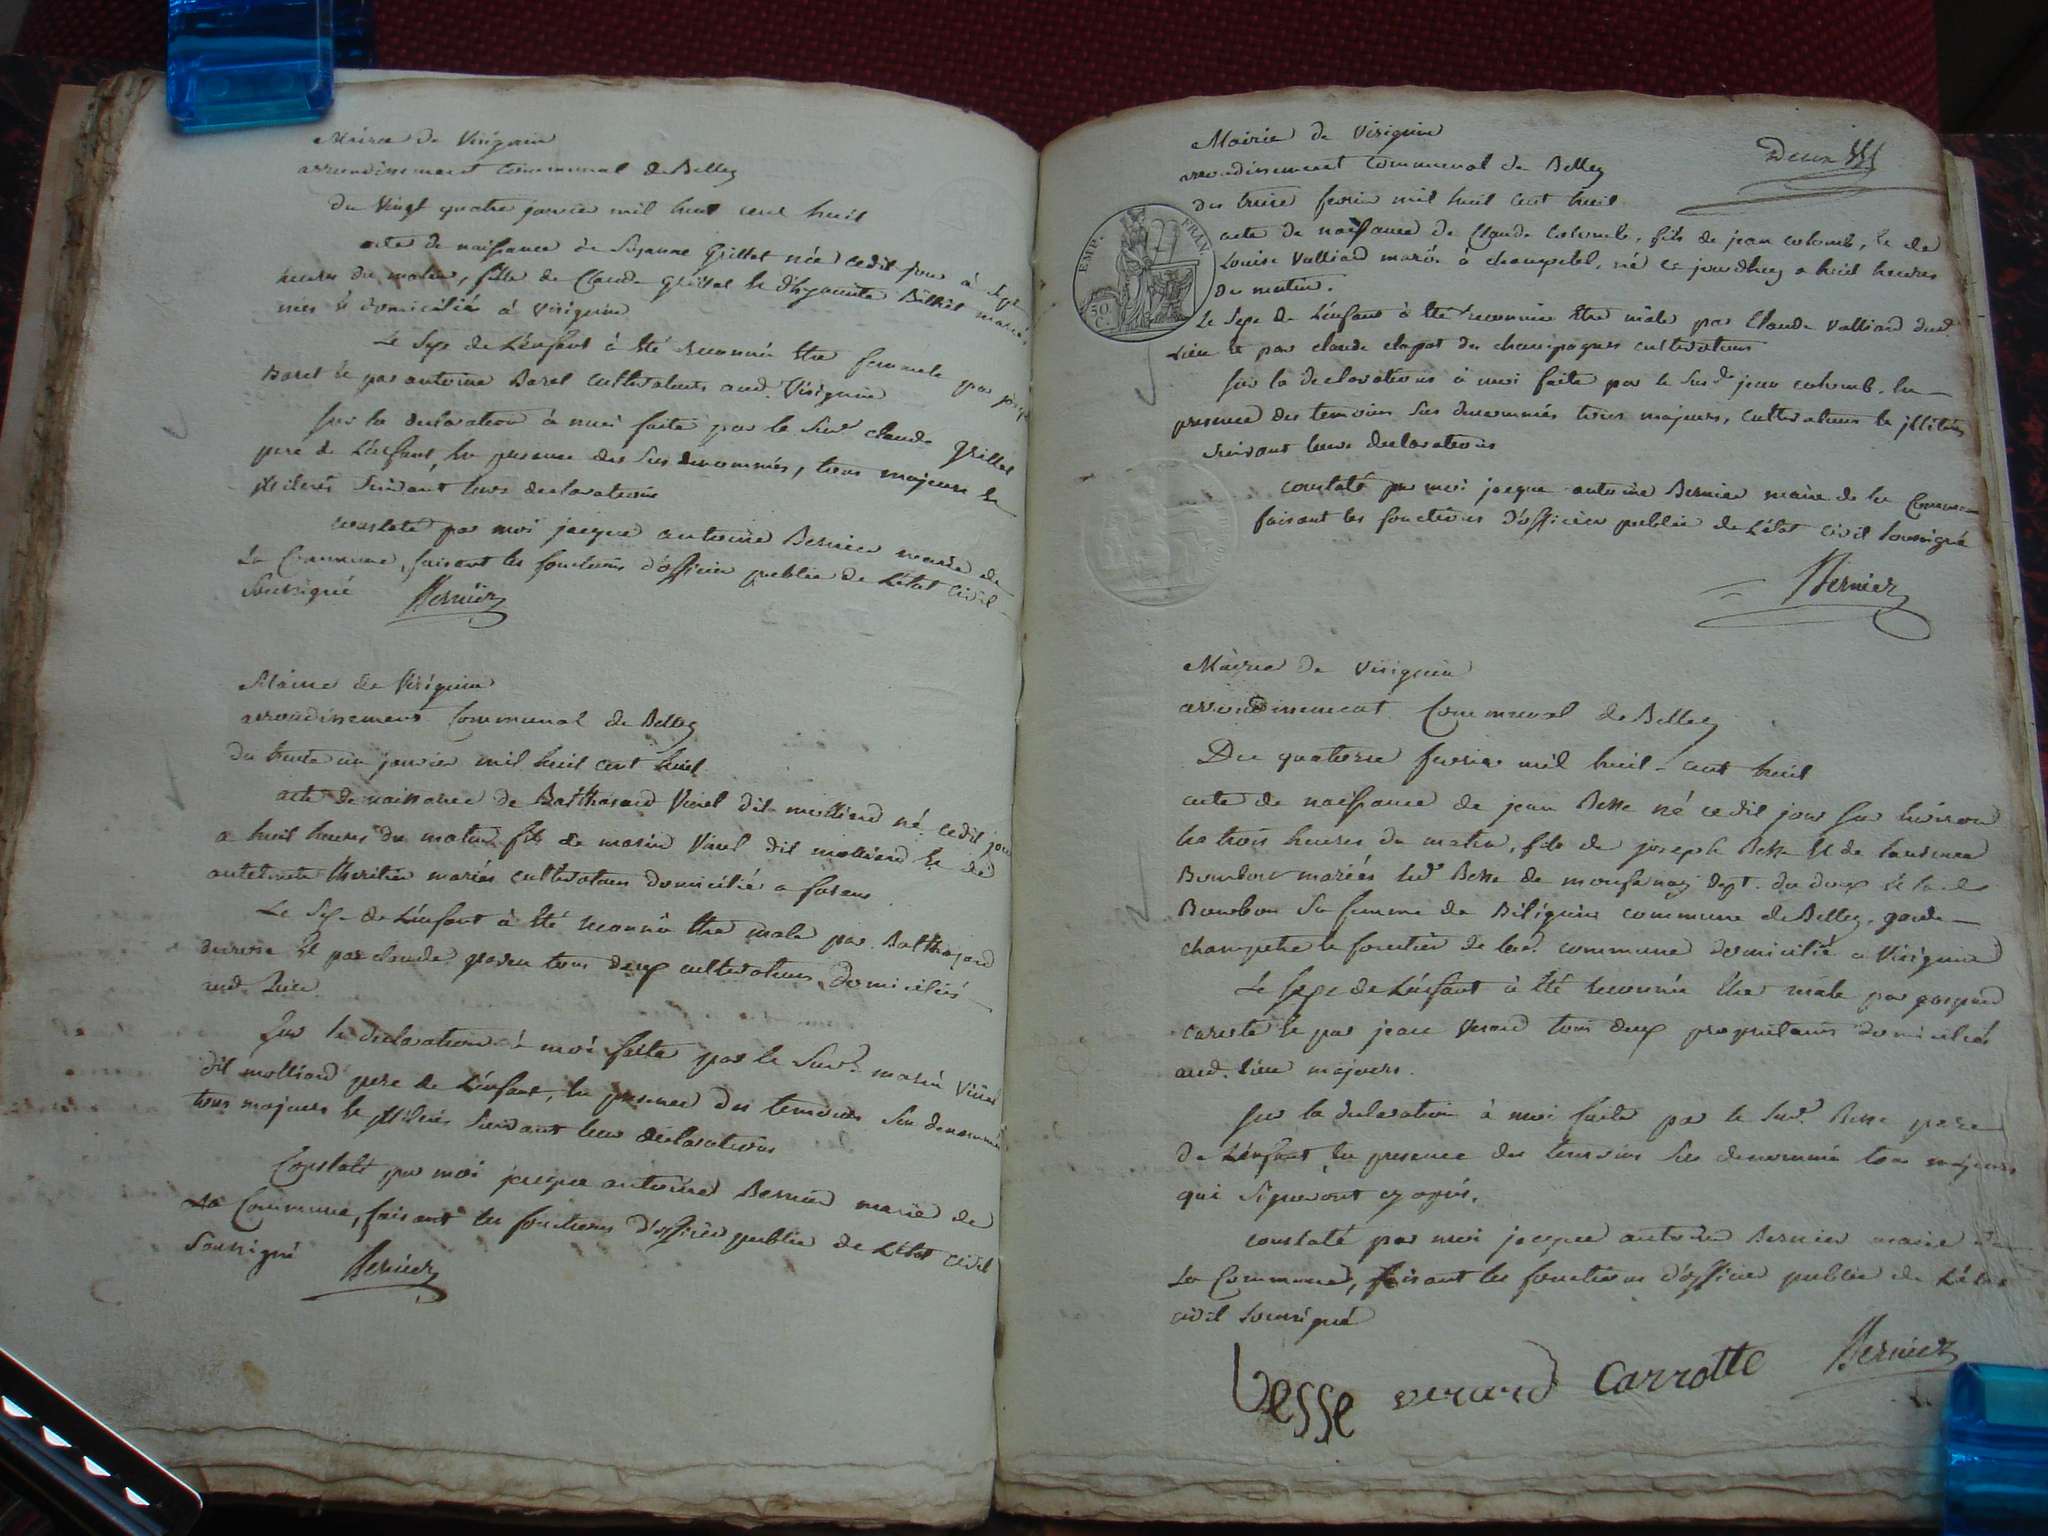 Mairie de Virignin
arrondissement communal de Belley
du vingt quatre janvier mil huit cent huit
acte de naissance de Suzanne Grillet née cedit jour à sept
heures du matin, fille de Claude Grillet et d'hyacinte Billiet mariés
et domiciliés à Virignin
Le Sexe de L'enfant à été reconnu être femmele par
Borel et par antoine Borel cultivateurs aud. Virignin
sur la declaration à moi faite par le Sud. claude Grillet
pere de L'enfant, en presence des Sus denommés, tous majeurs et
illiterés suivant leurs declarations
constaté par moi jacque antoine Bernier maire de
La Commune, faisant les fonctions d'officier public de L'état civil
Soussigné Bernier
Mairie de Virignin
arrondissement Communal de Belley
du trente un janvier mil huit cent huit
acte de naissance de Balthasard Vinel dit molliard né cedit jour
a huit heures du matin fils de marin Vinel dit molliard et de
antelmette mariés cultivateurs domicilié a
Le Sexe de L'enfant à été reconnu être male par Balthazard
et par claude tous deux cultivateurs domiciliés
aud. Lieu
Sur la declaration à moi faite par le Sud. marin Vinel
dit molliard pere de L'enfant, en presence des temoins Sus denommés
tous majeurs et illiterés suivant leur declarations
Constaté par moi jacque antoine Bernier maire de
La Commune, faisant les fonctions d'officier public de L'état civil
Soussigné Bernier
Deux
Mairie de Virignin
arrondissement communal de Belley
du treize fevrier mil huit cent huit
acte de naissance de Claude Colomb, fils de jean colomb, et de
Louise Valliard mariés à champetel, né ce jourdhuy a huit heures
du matin.
EMP. FRAN.
50 C.
Le Sexe de L'enfant à été reconnu être mâle par Claude Valliard dud.
Lieu et par claude clapot de champagne cultivateurs
sur la declarations à moi faite par le Susd. jean colomb. en
presence des temoins Sus denommés tous majeurs, cultivateurs et illiterés
suivant leurs declarations
constaté par moi jacque antoine Bernier maire de la Commune
faisant les fonctions d'officier public de L'état civil soussigné
Bernier
Mairie de Virignin
arrondissement Communal de Belley
Du quatorze fevrier mil huit cent huit
acte de naissance de jean Besse né cedit jour sur environ
les trois heures du matin, fils de joseph Besse et de
Bourbon mariés led. Besse de dept. du doux et lad.
Bourbon Sa femme de Biliguin commune de Belley, garde
champetre et forestier de lad. commune domicilié a Virignin
Le Sexe de L'enfant à été reconnu être male par gaspard
carrote et par jean Verard tous deux proprietaires domiciliés
aud. lieu majeurs.
sur la declaration à moi faite par le Sud. Besse pere
de L'enfant, en presence des temoins Sus denommés tous majeurs
qui Signeront cy après.
constaté par moi jacque antoine Bernier maire de
La Commune, faisant les fonctions d'officier public de L'état
civil soussigné
besse verard Carrotte Bernier